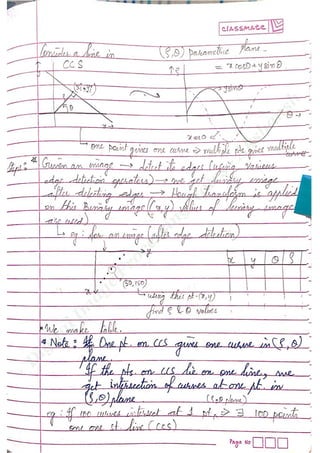 classmate
Consider a line in (ρ,θ) parametric plane.
CCS ρ = xcosθ+ysinθ
(x1,y1) ysinθ
ρ
θ θ→
x→ xcosθ
↳ one point gives one curve ⇒ multiple pts gives multiple
curves
Steps: * Given an image → detect its edges (using various
edge detection operators) → we get binary image
after detecting edges → Hough transform is applied
on this Binary image ((x,y) values of binary image
are used)
↳ eg: for an image (after edge detection)
y
x y θ ρ
(50,100)
↳ using this pt-(x,y)
find ρ & θ values
* We make table.
* Note: One pt. on CCS gives one curve in (ρ,θ)
plane.
If the pts. on CCS lie on one line, we
get intersection of curves at one pt. in
(ρ,θ) plane (ρ,θ plane)
eg: If 100 curves intersect at 1 pt, ⇒ ∃ 100 points
one one st line (CCS)
Page No